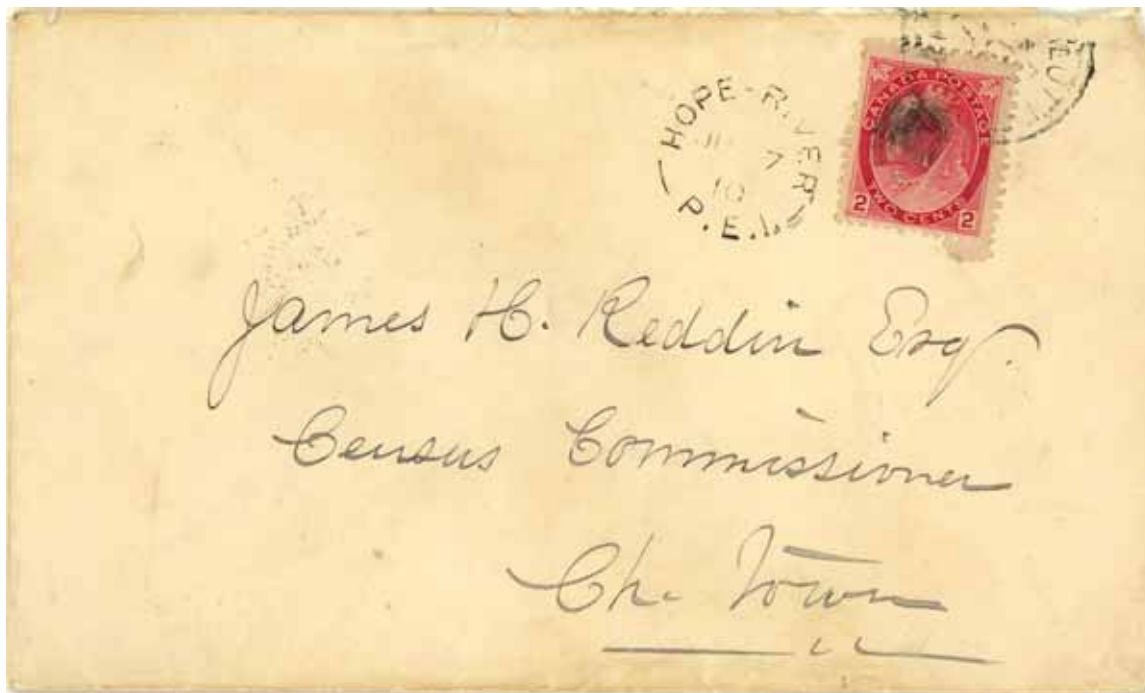 HOPE-RIVER
7
10
P.E.I.
CANADA POSTAGE
2 TWO CENTS 2
James H. Reddin Esq.
Census Commissioner
Ch. Town